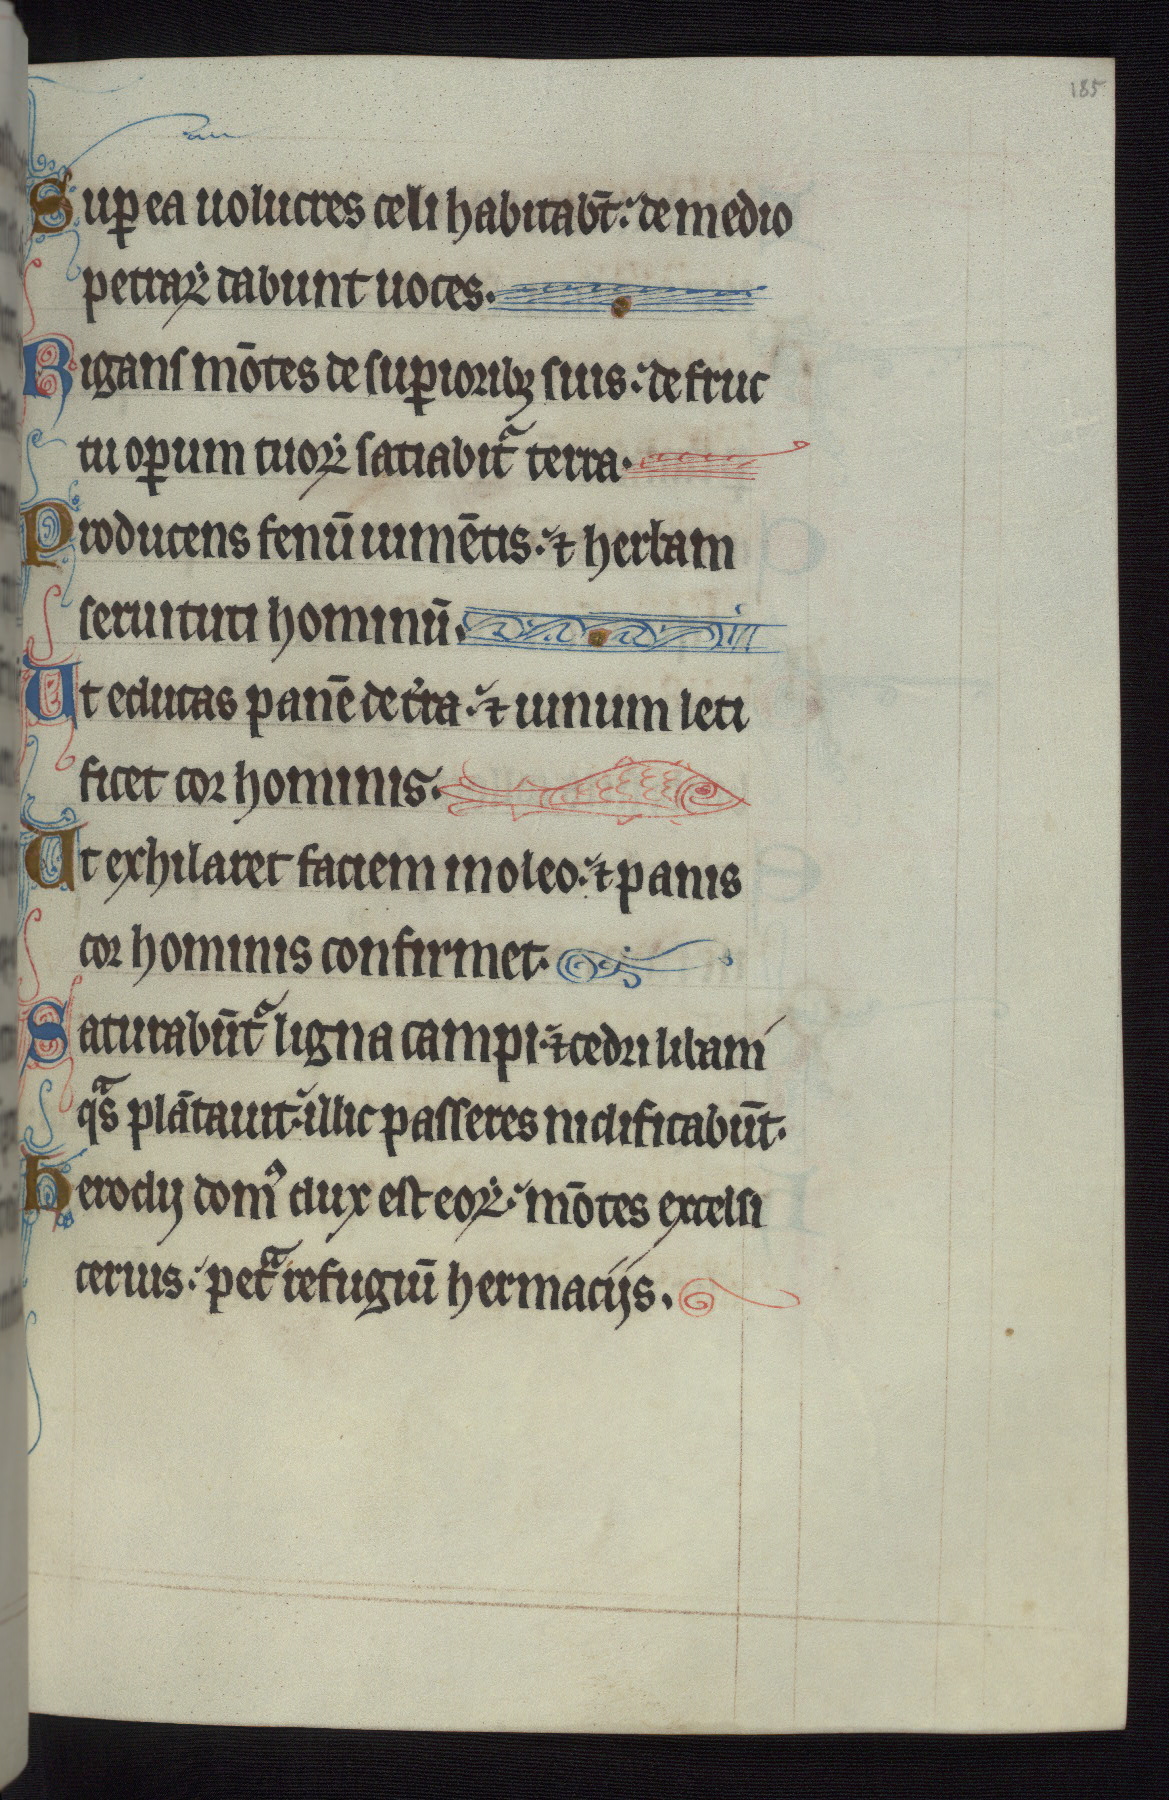 185
Suꝑ ea uolucres celi habitabt̄: de medio
petraꝝ dabunt uoces.
Rigans mōtes de suꝑioribꝫ suis: de fruc
tu oꝑum tuoꝝ satiabitᷓ terra.
Producens fenū iumētis: ⁊ herbam
seruituti hominū.
Ut educas panē de t̓ra: ⁊ uinum leti
ficet cor hominis.
Ut exhilaret faciem in oleo: ⁊ panis
cor hominis confirmet.
Saturabūtᷓ ligna campi ⁊ cedri libani
qᷓs plātauit: illic passeres nidificabūt.
herodij domꝰ dux est eoꝝ: mōtes excelsi
ceruis: petᷓ refugiū hermacijs.